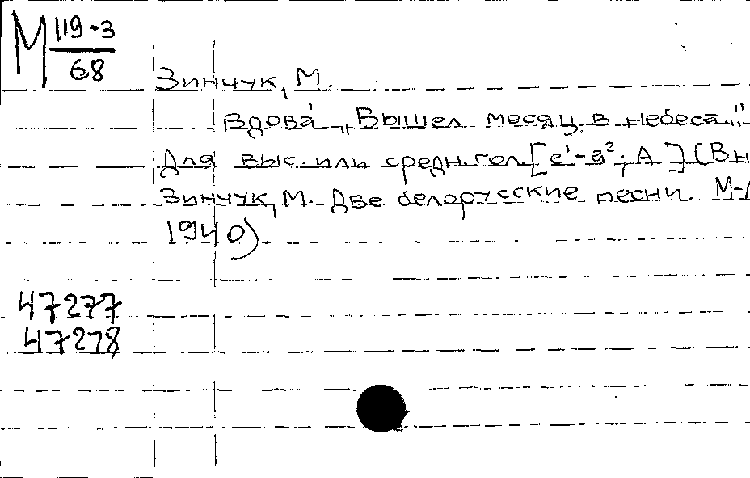 М 119-3
68
Зинчук, М.
Вдова „Вышел месяц в небеса.."
Для выс. или средн. гол. [e¹-a²; A] (Вн
Зинчук, М. Две белорусские песни. М-Л
1940)
47277
47278